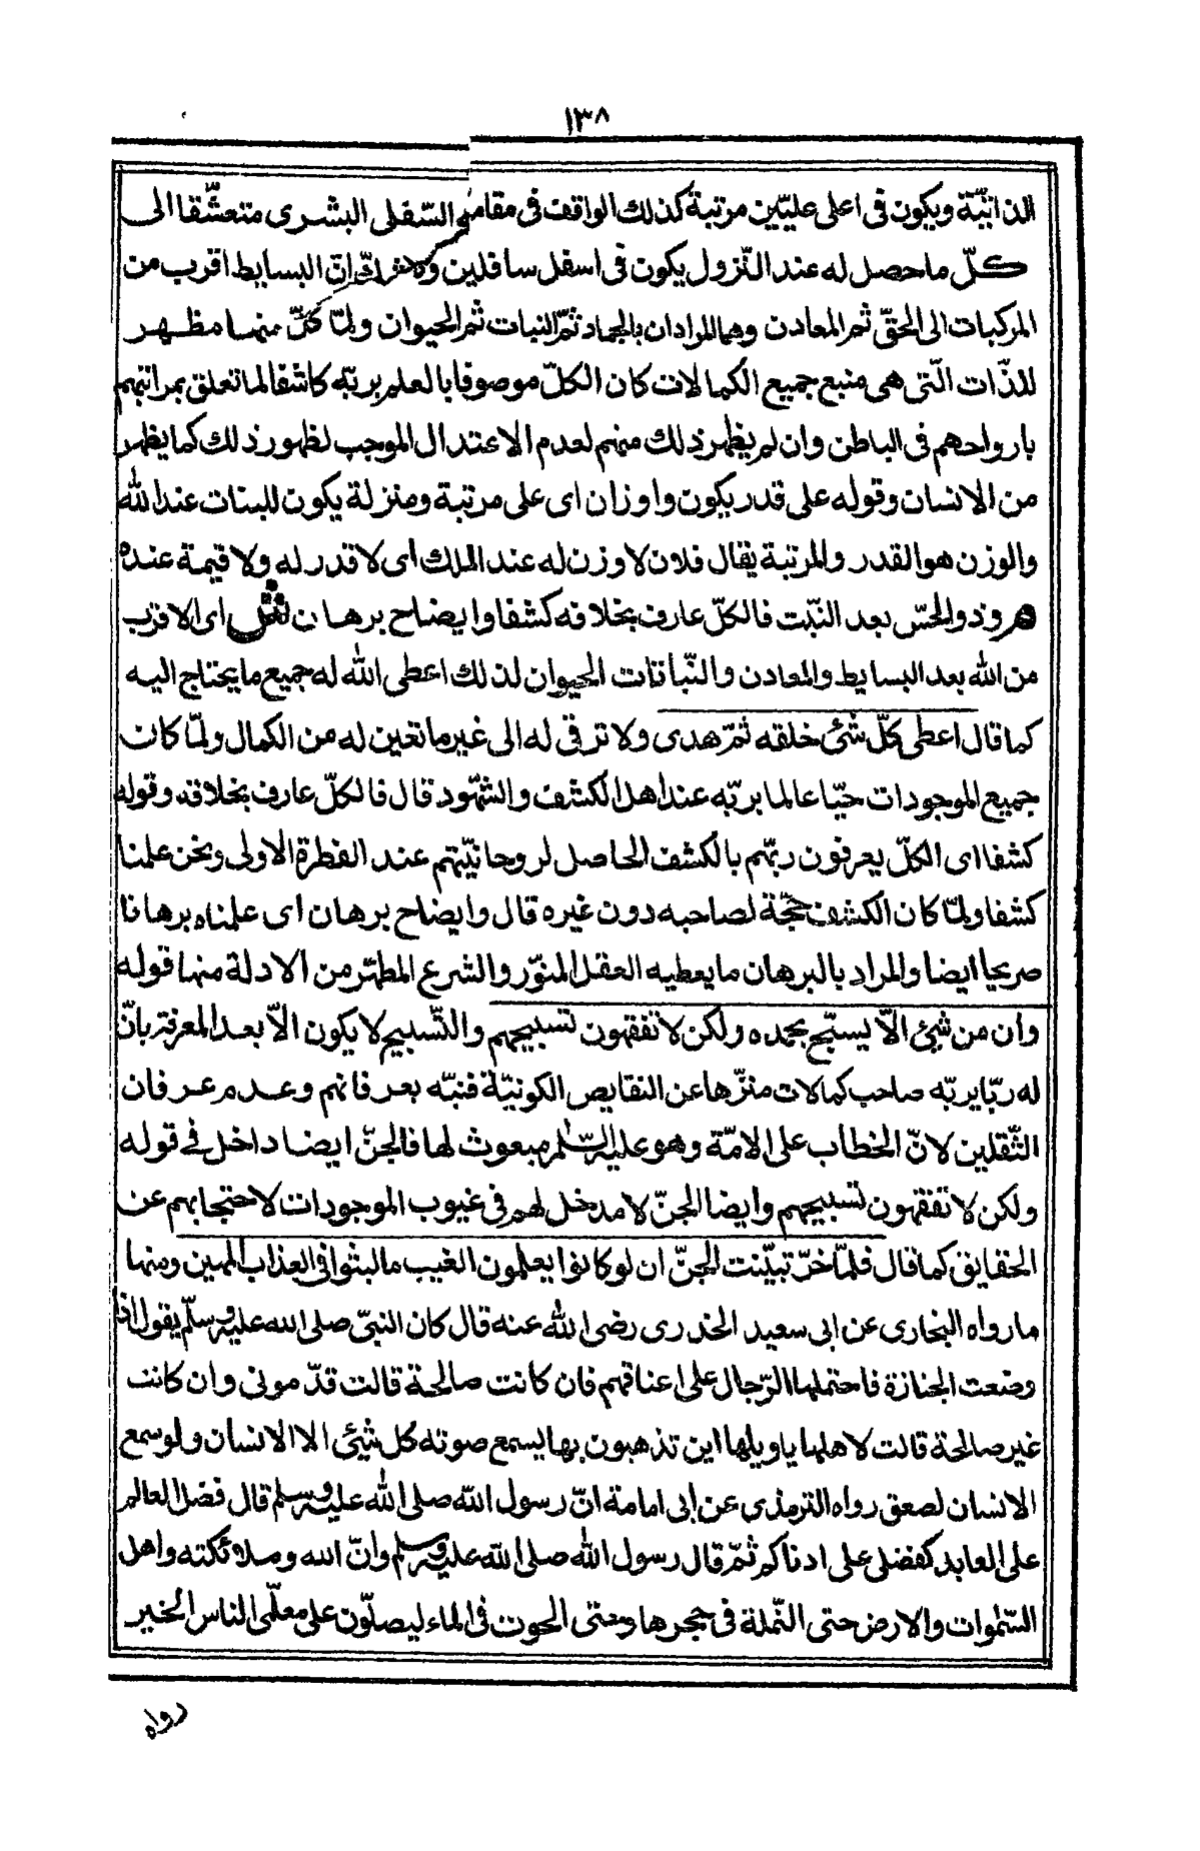 ١٣٨
الذاتيّة ويكون فى اعلى عليّين مرتبة كذلك الواقف فى مقامه السّفلى البشرى متعشّقا الى
كلّ ما حصل له عند النّزول يكون فى اسفل سافلين ولا شكّ انّ البسايط اقرب من
المركبات الى الحقّ ثم المعادن وهما المرادان بالجماد ثمّ النبات ثم الحيوان ولمّا كلّ منها مظهر
للذّات الّتى هى منبع جميع الكمالات كان الكلّ موصوفا بالعلم بربّه كاشفا لما تعلق بمراتبهم
بارواحهم فى الباطن وان لم يظهر ذلك منهم لعدم الاعتدال الموجب لظهور ذلك كما يظهر
من الانسان وقوله على قدر يكون واوزان اى على مرتبة ومنزلة يكون للبنات عند الله
والوزن هو القدر والمرتبة يقال فلان لا وزن له عند الملك اى لا قدر له ولا قيمة عنده
هر وذو الحسّ بعد النّبت فالكلّ عارف بخلاقه كشفا وايضاح برهان ش اى الاقرب
من الله بعد البسايط والمعادن والنّباتات الحيوان لذلك اعطى الله له جميع ما يحتاج اليه
كما قال اعطى كلّ شئ خلقه ثمّ هدى ولا ترقى له الى غير ما تعين له من الكمال ولمّا كان
جميع الموجودات حيّا عالما بربّه عند اهل الكشف والشهّود قال فالكلّ عارف بخلاقه وقوله
كشفا اى الكلّ يعرفون ربّهم بالكشف الحاصل لروحانيّتهم عند الفطرة الاولى ونحن علمنا
كشفا ولمّا كان الكشف حجّة لصاحبه دون غيره قال وايضاح برهان اى علمناه برهانا
صريحا ايضا والمراد بالبرهان ما يعطيه العقل المنوّر والشرع المطهّر من الادلة منها قوله
وان من شئ الاّ يسبّح بحمده ولكن لا تفقهون تسبيحهم والتّسبيح لا يكون الاّ بعد المعرفة بانّ
له ربّا يربّه صاحب كمالات منزّها عن النقايص الكونيّة فنبّه بعرفانهم وعدم عرفان
الثّقلين لانّ الخطاب على الامّة وهو عليه السّلم مبعوث لها فالجنّ ايضا داخل فى قوله
ولكن لا تفقهون تسبيحهم وايضا الجنّ لا مدخل لهم فى غيوب الموجودات لاحتجابهم عن
الحقايق كما قال فلمّا خرّ تبيّنت الجنّ ان لو كانوا يعلمون الغيب ما لبثوا فى العذاب المهين ومنها
ما رواه البخارى عن ابى سعيد الخدرى رضى الله عنه قال كان النبىّ صلى الله عليه وسلّم يقول اذا
وضعت الجنازة فاحتملها الرّجال على اعناقهم فان كانت صالحة قالت قدّمونى وان كانت
غير صالحة قالت لاهلها يا ويلها اين تذهبون بها يسمع صوته كل شئ الا الانسان ولو سمع
الانسان لصعق رواه الترمذى عن ابى امامة انّ رسول الله صلى الله عليه وسلم قال فضل العالم
على العابد كفضلى على ادناكم ثمّ قال رسول الله صلى الله عليه وسلم وانّ الله وملائكته واهل
السّموات والارض حتى النّملة فى حجرها وحتى الحوت فى الماء ليصلّون على معلّمى الناس الخير
رواه